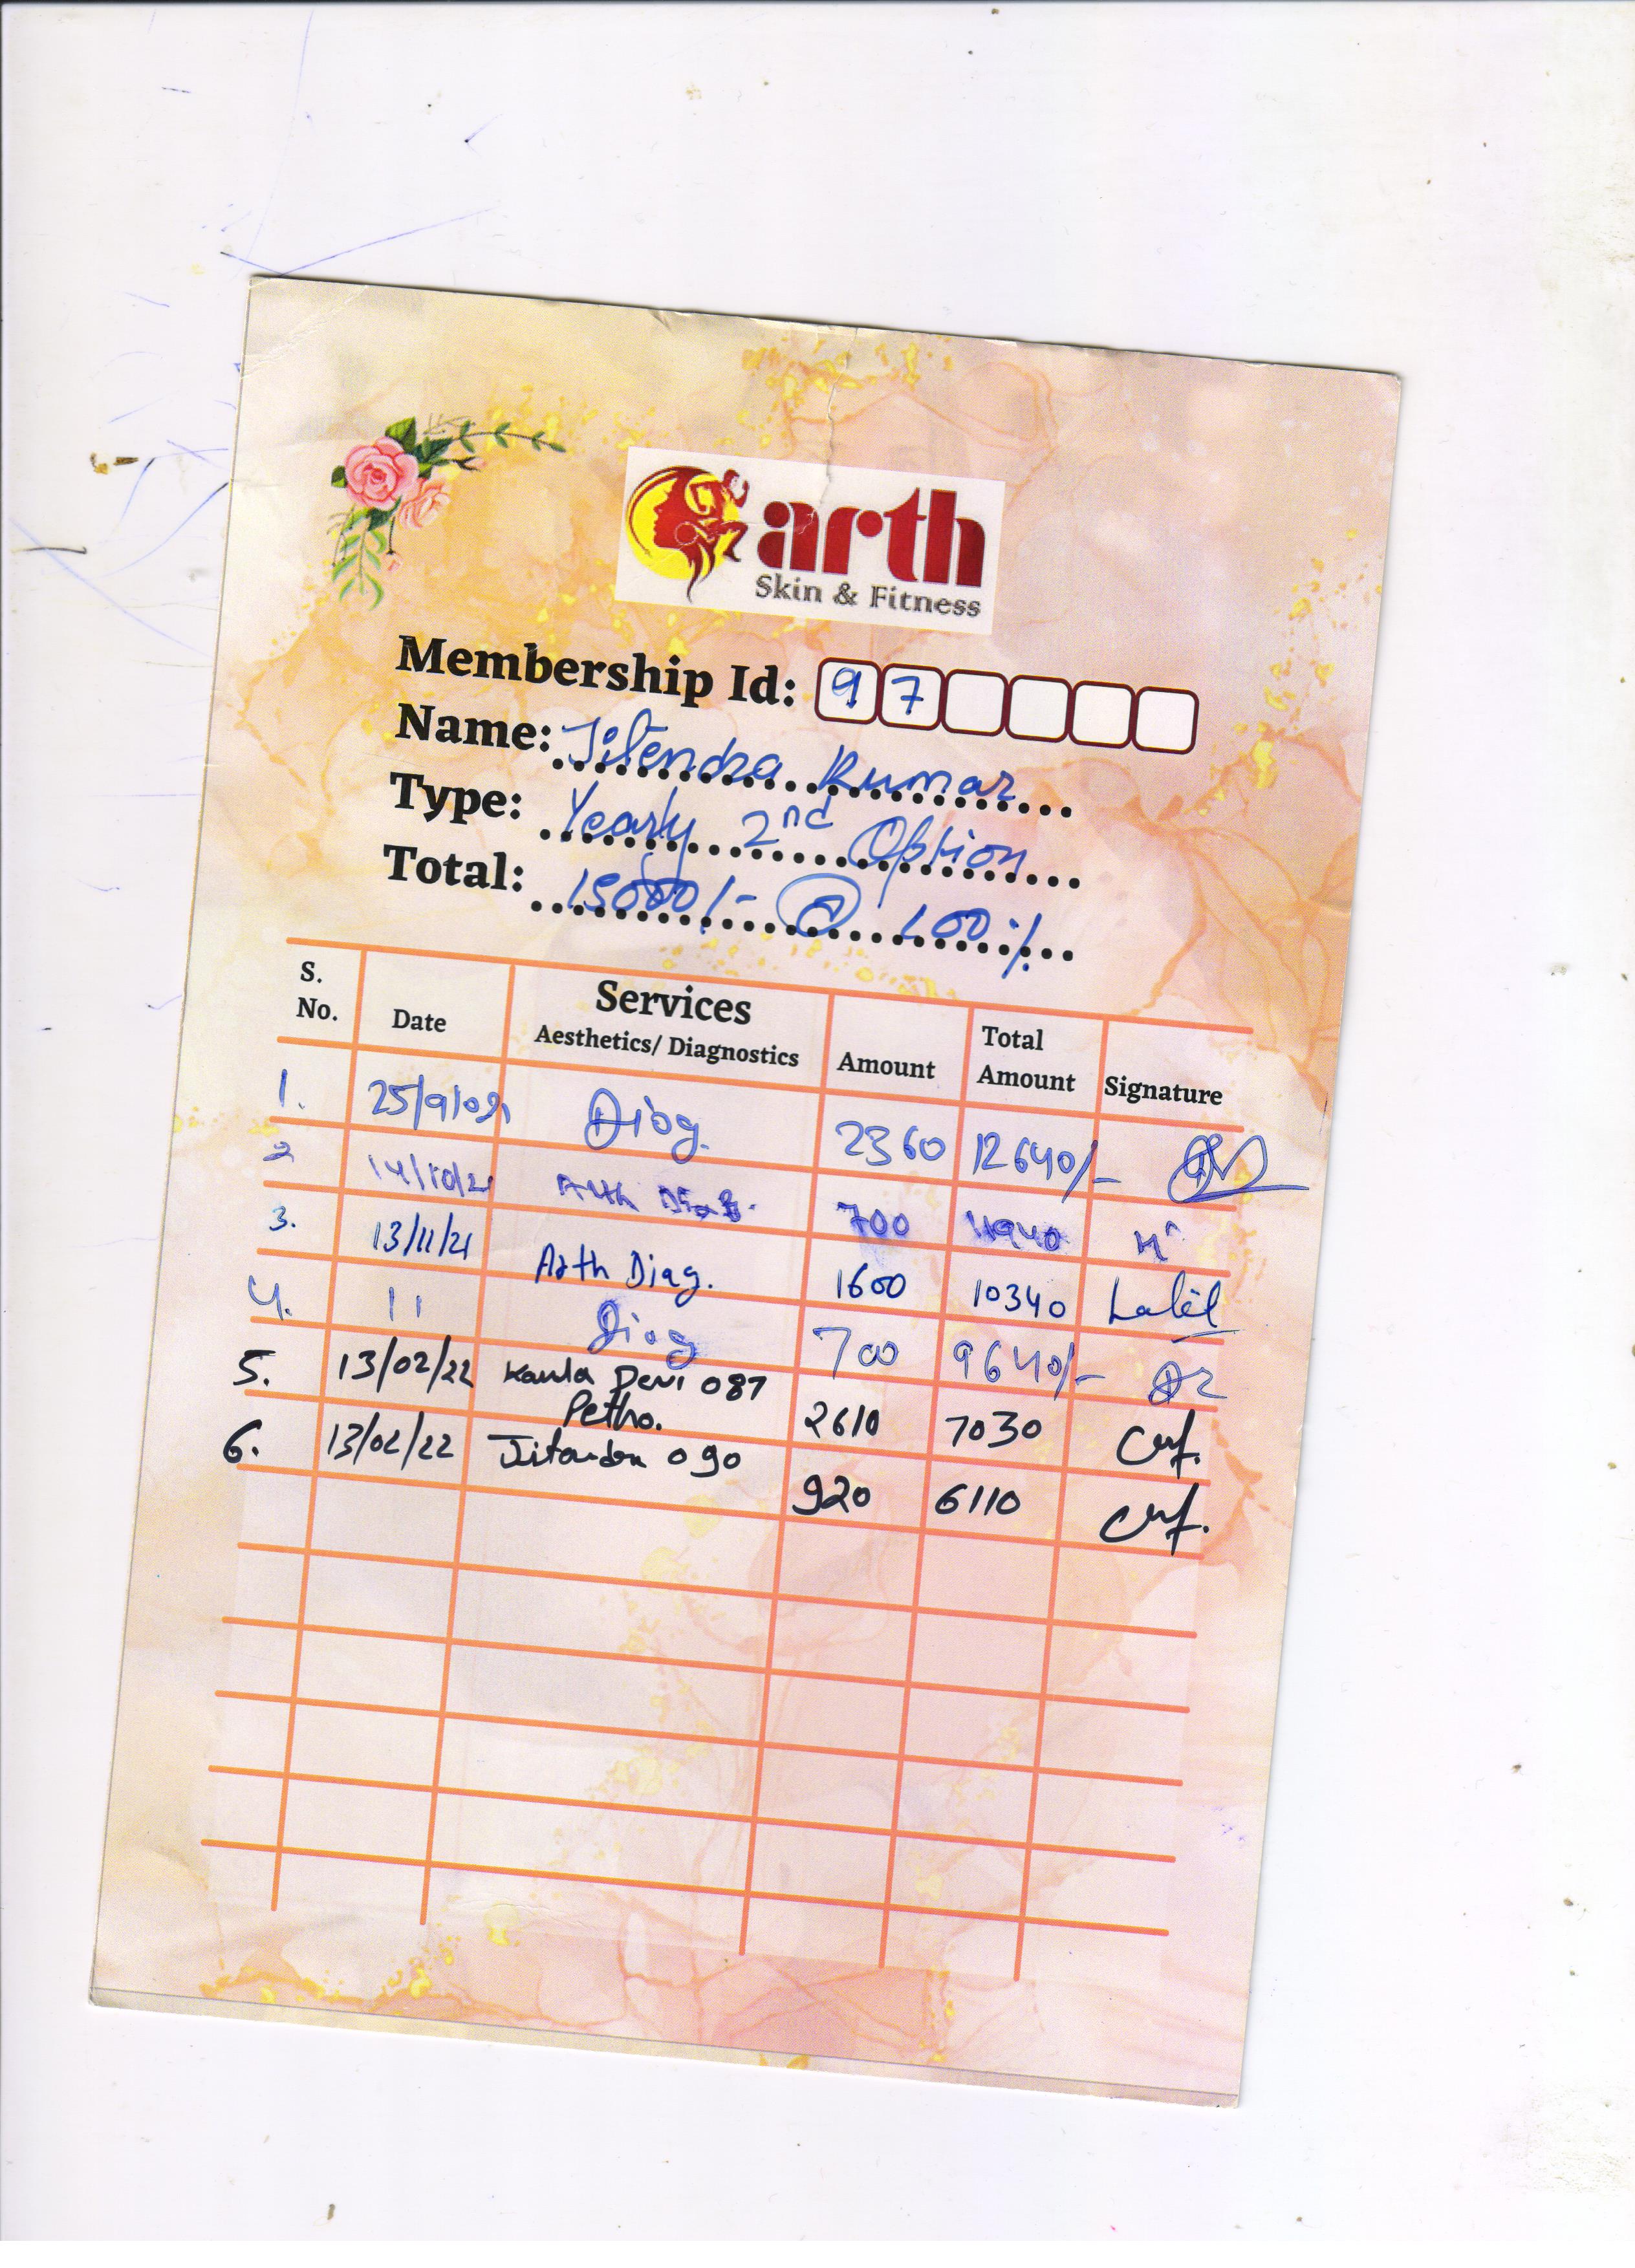 arth
Skin & Fitness
Membership Id: 97
Name: Jitendra Kumar
Type: Yearly 2nd Option
Total: 15000/- @ 100%
S. No. Date Services Aesthetics/ Diagnostics Amount Total Amount Signature
1. 25/9/021 Diag. 2360 12640/-
2 14/10/21 Arth Diag. 700 11940
3. 13/11/21 Arth Diag. 1600 10340 Lalit
4. 11 Diag 700 9640/-
5. 13/02/22 Kamla Devi 087 Patho. 2610 7030
6. 13/02/22 Jitendra 090 920 6110